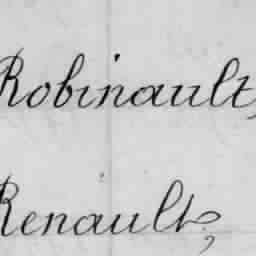 Robinault,
Renault,